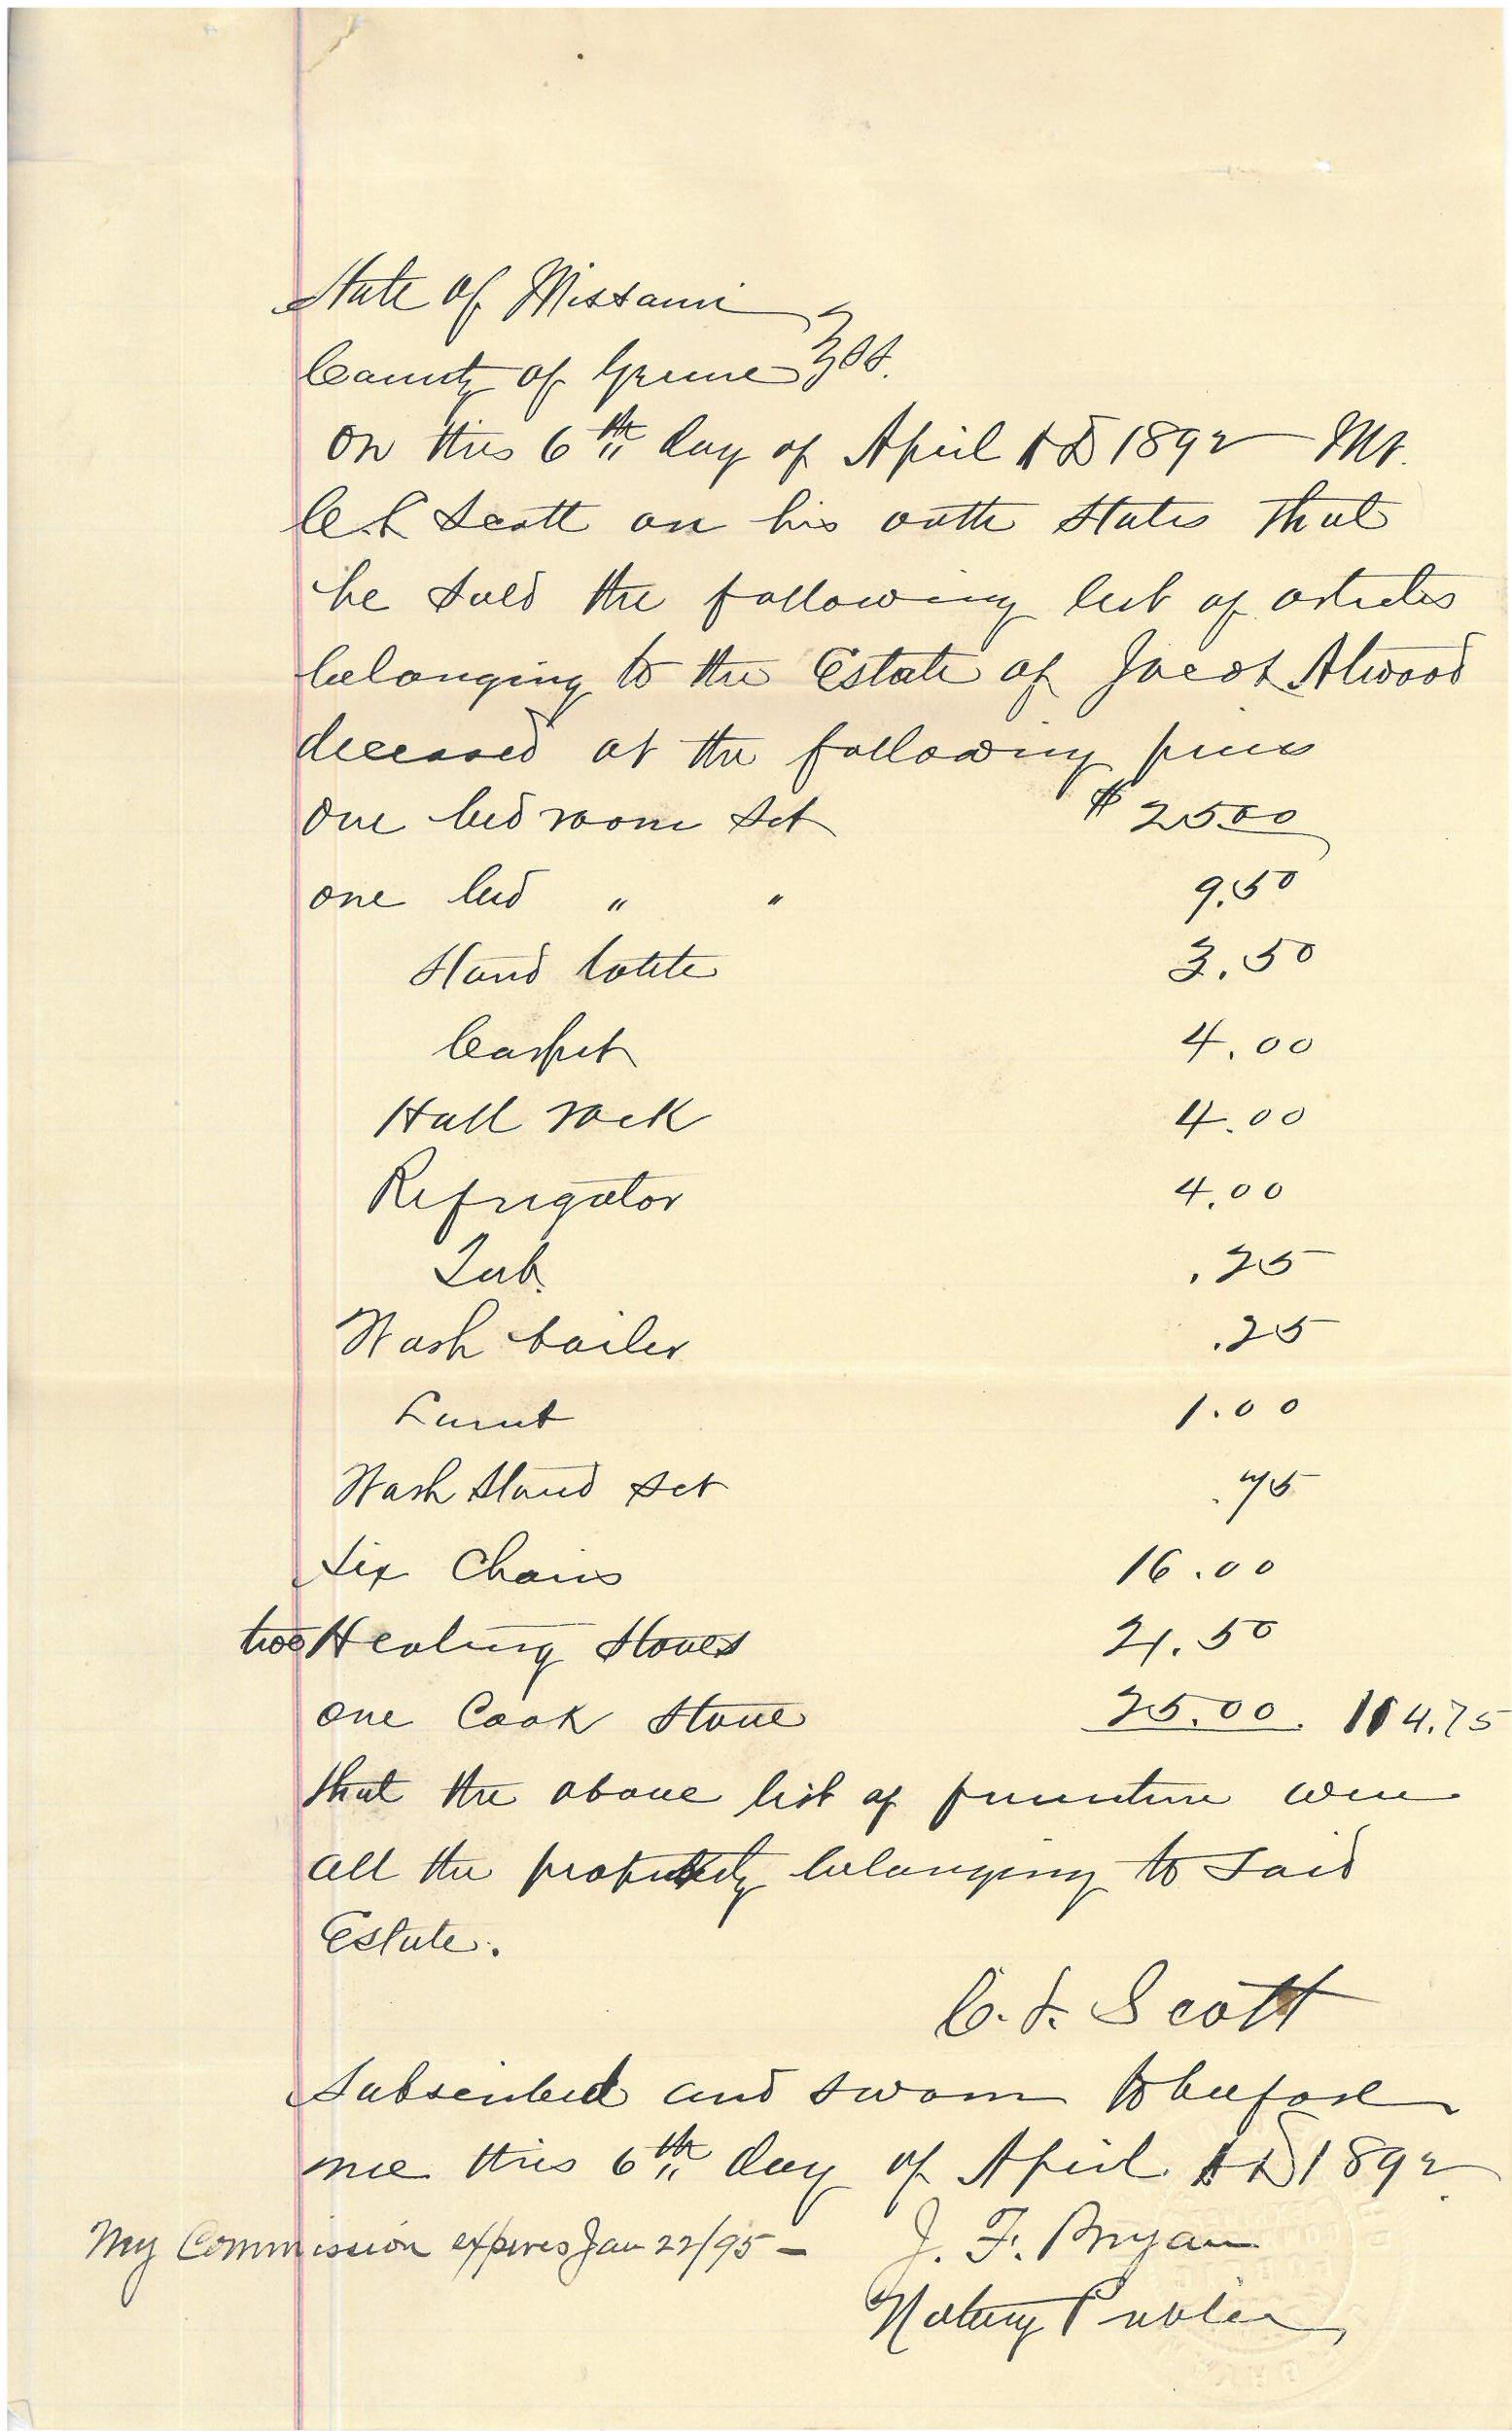 State of Missouri
County of Greene } SS.
On this 6th day of April AD 1892 Mr.
C. L Scott on his oath states that
he sold the following list of articles
belonging to the Estate of Jacob Atwood
deceased at the following prices
One bed room set $25.00
one bed " " 9.50
Stand table 3.50
Carpet 4.00
Hall rack 4.00
Refrigator 4.00
Tub. .25
Wash boiler .25
1.00
Wash Stand set .75
Six Chairs 16.00
two Heating Stoves 21.50
one Cook Stove 25.00. 114.75
that the above list of furniture were
all the property belonging to said
Estate.
C. L. Scott
Subscribed and sworn to before
me this 6th day of April AD 1892
My Commission expires Jan 22/95 - J. F. Bryan
Notary Public